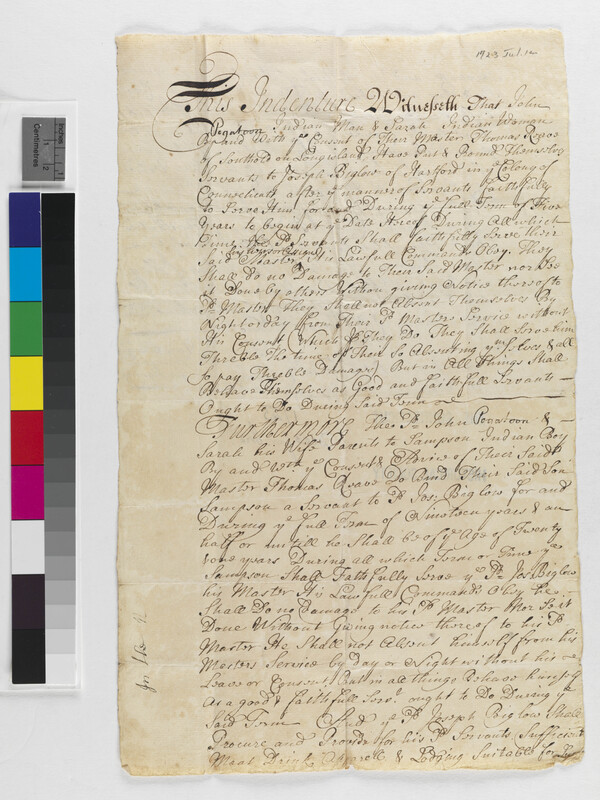 1723 Jul. 12
This Indenture Witnesseth That John
Pegatoon Indian Man & Sarah Indian Woman
By and With ye Consent of Their Master Thomas Reave
of Southold on Longisland Have Put & Bound Themselves
Servants to Joseph Biglow of Hartford in ye Colony of
Connecticut after ye manner of Servants faithfully
to Serve Him for and During ye full Term of Five
Years to begin at ye Date Hereof During All which
time The sd Servants Shall faithfully Serve their
Said Master His Lawfull Commands Obey They
Shall do no Damage to Their Said Master nor See
it Done by others Without giving Notice thereof to
sd Master They Shall not Absent Themselves By
Night or day from Their sd Masters Service without
His Consent Which If They Do They Shall Serve him
Threble The time of Their So Absenting ym Selves & all
So pay Threble Damage But in All Things Shall
Behave Themselves as Good and faithfull Servants
Ought to Do During Said Term
Furthermore The sd John Pegatoon &
Sarah his Wife Parents to Sampson Indian Boy
By and With ye Consent & Advice of Their Said
Master Thomas Reave Do Bind Their Said Son
Sampson a Servant to sd Jos: Biglow for and
During ye full Tearm of Nineteen years & an
half or untill he Shall be of ye Age of Twenty
& one years During all which Term or Time ye sd
Sampson Shall Faithfully Serve ye sd Jos Biglow
his Master His Lawfull Commands Obey he
Shall Do no Damage to his sd Master Nor Se it
Done Without Giving notice thereof to his sd
Master He Shall not Absent himself from his
Masters Service by day or Night without his
Leave or Consent But in all things Behave himself
as a good & faithfull Servt ought to Do During ye
Said Term And ye sd Joseph Biglow Shall
Procure and Provide for his sd Servants Sufficient
Meat Drink Aparrell & Lodging Suitable for
Centimetres
Inches
1
2